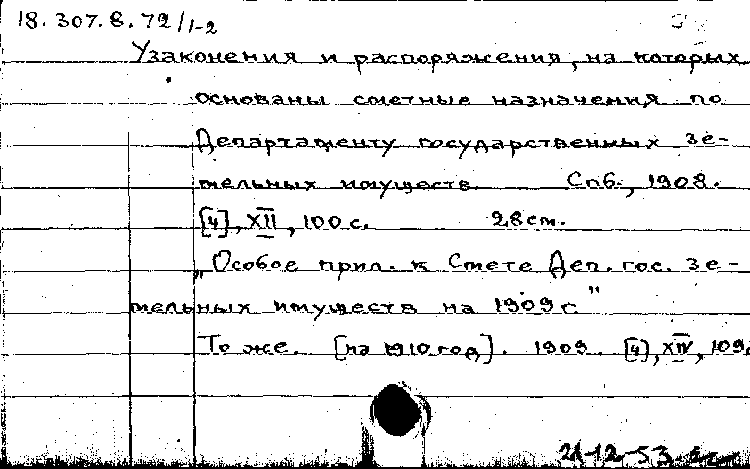 18.307.8.72/1-2
Узаконения и распоряжения, на которых
основаны сметные назначения по
Департаменту государственных зе-
мельных имуществ. Спб., 1908.
[4], XII, 100 с. 28 см.
"Особое прил. к Смете Деп. гос. зе-
мельных имуществ на 1909 г."
То же. [на 1910 год]. 1909. [4], XIV, 109
21-12-53